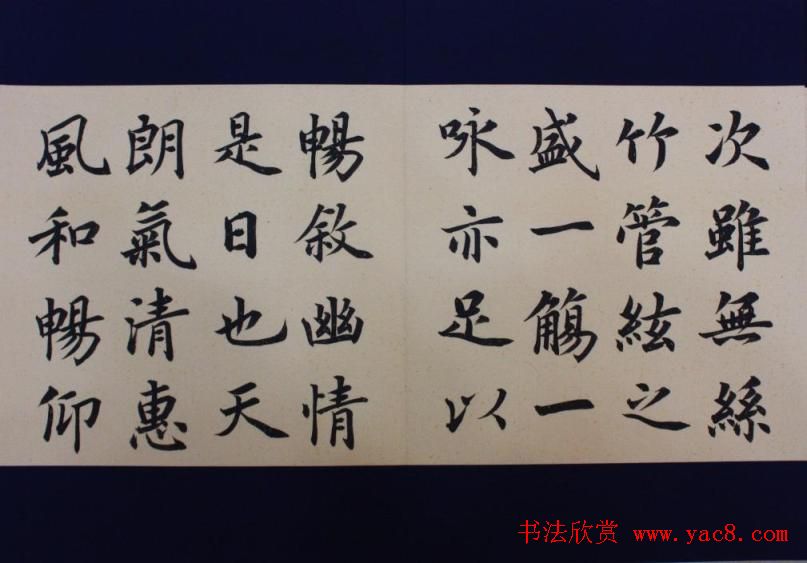 次雖無絲
竹管絃之
盛一觴一
咏亦足以
暢敘幽情
是日也天
朗氣清惠
風和暢仰
书法欣赏 www.yac8.com